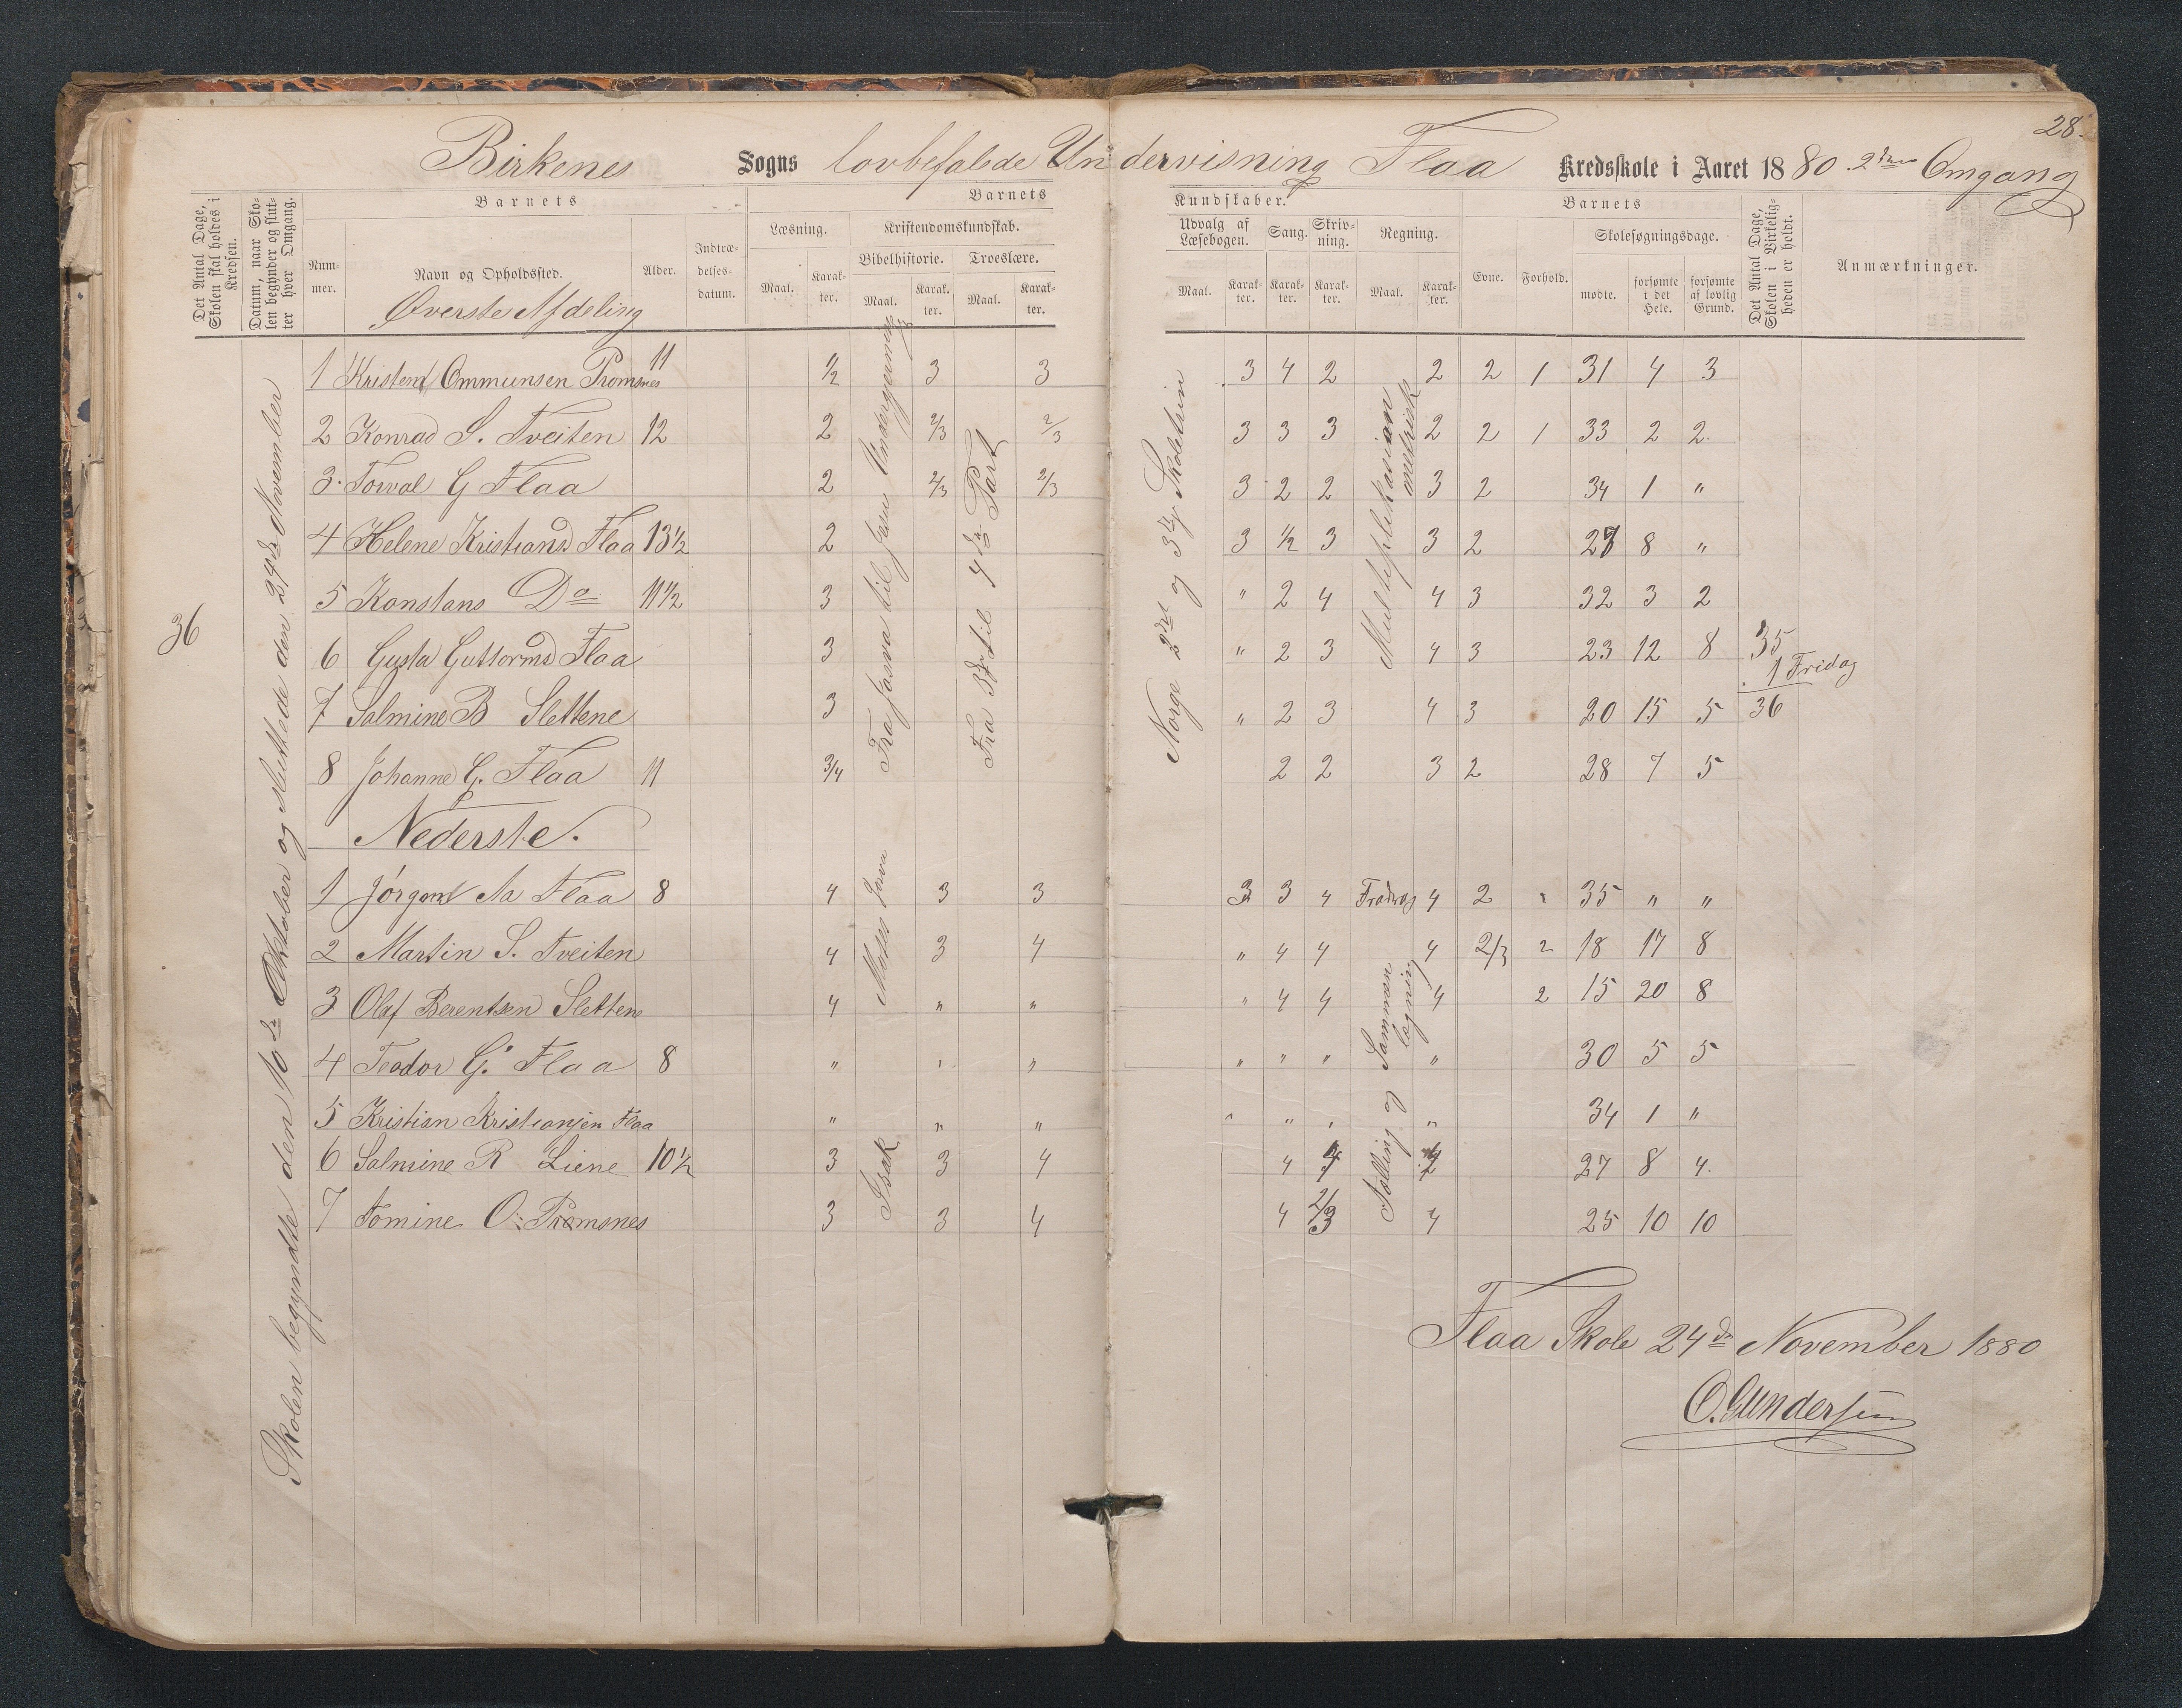 28.
Birkenes Sogns lovbefalede Undervisning Flaa Kredsskole i Aaret 1880. 2den Omgang
Det Antal Dage, Skolen skal holdes i Kredsen.
Datum, naar Skolen begynder og slutter hver Omgang.
Barnets
Nummer.
Navn og Opholdssted.
Alder.
Indtrædelsesdatum.
Barnets Kundskaber.
Læsning.
Maal. Karakter.
Kristendomskundskab.
Bibelhistorie. Troeslære.
Maal. Karakter. Maal. Karakter.
Udvalg af Læsebogen.
Maal. Karakter.
Sang. Karakter.
Skrivning. Karakter.
Regning.
Maal. Karakter.
Barnets
Evne. Forhold.
Skolesøgningsdage.
mødte. forsømte i det Hele. forsømte af lovlig Grund.
Det Antal Dage, Skolen i Virkeligheden er holdt.
Anmærkninger.
36
Skolen begyndte den 10de Oktober og sluttede den 24de November
Øverste Afdeling
1 Kristen Ommunsen Tromsnes 11 1/2 3 3 3 4 2 2 2 1 31 4 3
2 Konrad S. Tveiten 12 2 2/3 2/3 3 3 3 2 2 1 33 2 2
3 Torval G Flaa 2 2/3 2/3 3 2 2 3 2 34 1 "
4 Helene Kristiansd Flaa 13 1/2 2 3 1/2 3 3 2 27 8 "
5 Konstans Do 11 1/2 3 " 2 4 4 3 32 3 2
6 Gusta Guttormsd Flaa 3 " 2 3 4 3 23 12 8
7 Salmine B Slettene 3 " 2 3 4 3 20 15 5
8 Johanne G. Flaa 11 3/4 2 2 3 2 28 7 5
Fra Josva til Jesu Undergjerninger
Fra 3die til 4de Part
Norge 2det og 3die Skoletrin
Multiplikasion metrisk
35
1 Fridag
36
Nederste.
1 Jørgen Aa Flaa 8 4 3 3 3 3 4 Fradrag 4 2 2 35 " "
2 Martin S. Tveiten 4 3 4 " 4 4 4 2/3 2 18 17 8
3 Olaf Berentsen Slettene 4 " " " 4 4 4 2 15 20 8
4 Teodor G. Flaa 8 " " " " " " " 30 5 5
5 Kristian Kristiansen Flaa " " " " " " " 34 1 "
6 Salmine R Liene 10 1/2 3 3 4 4 27 8 4.
7 Tomine O. Tromsnes 3 3 4 4 2/3 4 25 10 10
Moses Josva
Isak
Tælling og Sammenlægning
Flaa Skole 24de November 1880
O. Gundersen